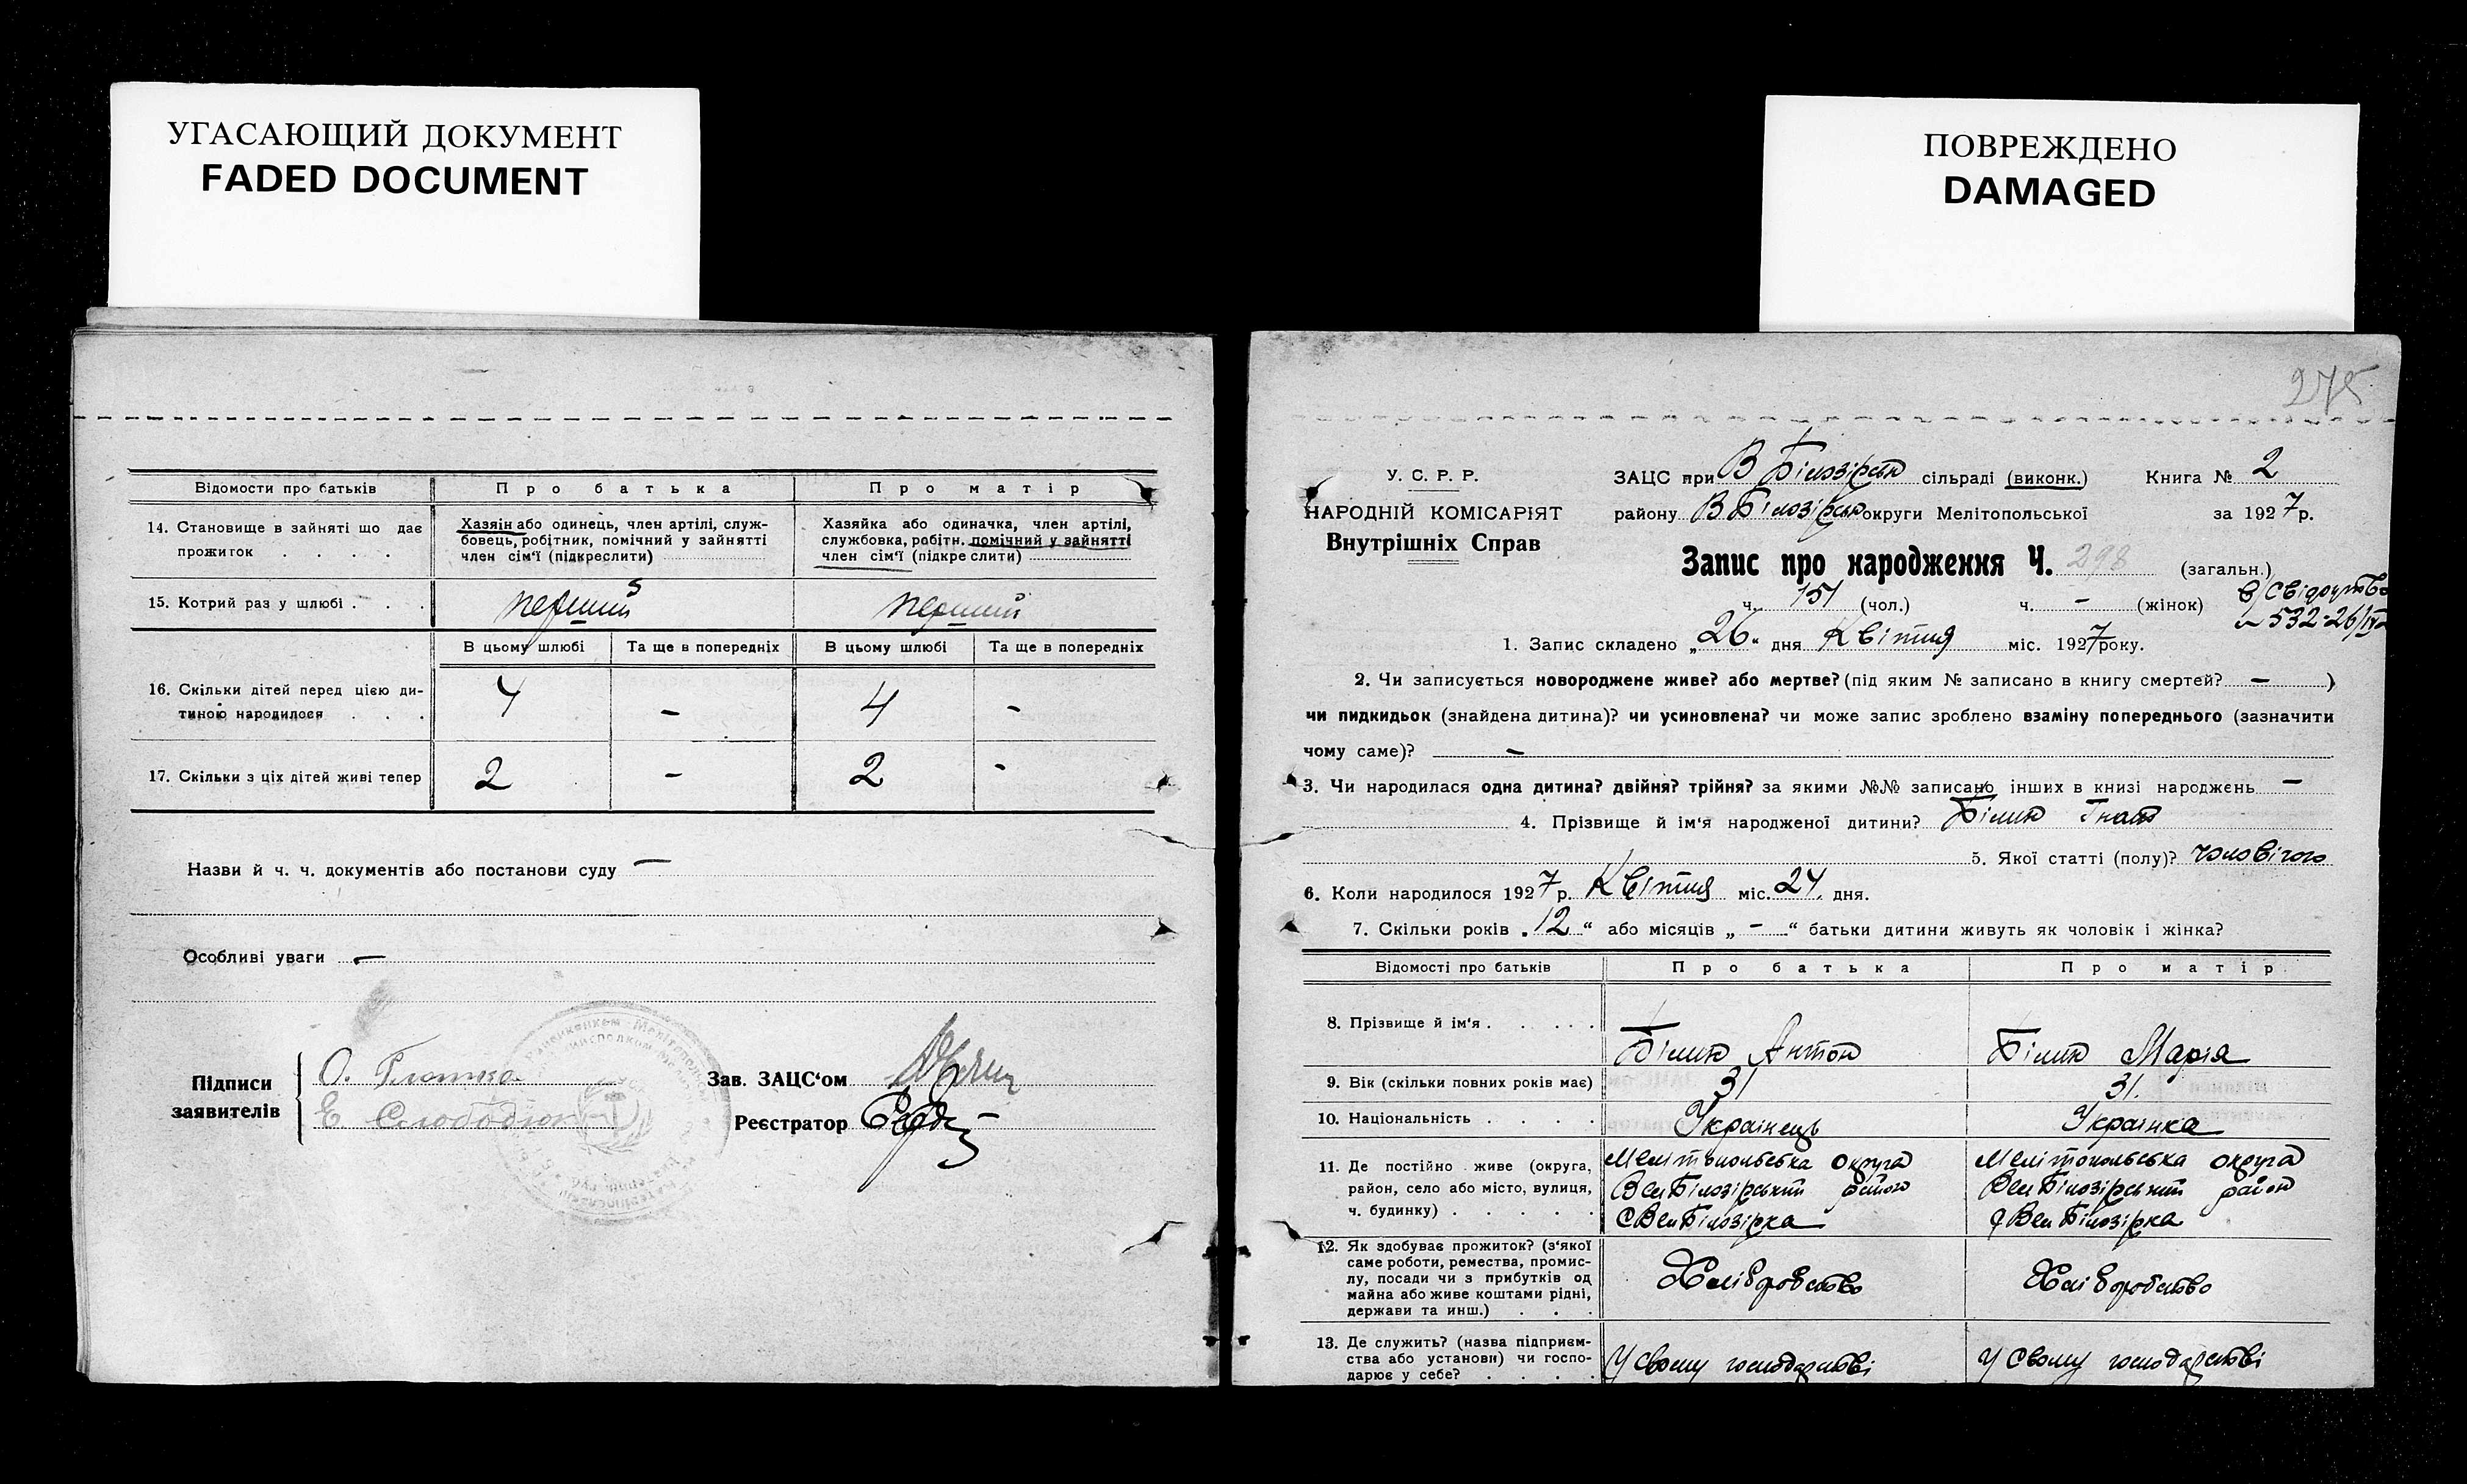 УГАСАЮЩИЙ ДОКУМЕНТ
FADED DOCUMENT
ПОВРЕЖДЕНО
DAMAGED
Відомости про батьків
Про батька
Про матір
14. Становище в зайняті що дає прожиток . . . .
Хазяїн або одинець, член артілі, служ-
бовець, робітник, помічний у зайнятті
член сім'ї (підкреслити)
Хазяйка або одиначка, член артілі,
службовка, робітн. помічний у зайнятті
член сім'ї (підкреслити)
15. Котрий раз у шлюбі . . . .
перший
перший
В цьому шлюбі
Та ще в попередніх
В цьому шлюбі
Та ще в попередніх
16. Скільки дітей перед цією ди-
тиною народилося . . . .
4 - 4 -
17. Скільки з ціх дітей живі тепер
2 - 2 -
Назви й ч. ч. документів або постанови суду —
Особливі уваги —
Підписи
заявителів
О.
Е
Зав. ЗАЦС'ом
Реєстратор
275
У. С. Р. Р.
НАРОДНІЙ КОМІСАРІЯТ
Внутрішніх Справ
ЗАЦС при В Білозірськ сільраді (виконк.) Книга № 2
району В Білозірськ округи Мелітопольської за 1927 р.
Запис про народження Ч. 298 (загальн.)
ч. 151 (чол.) ч. - (жінок)
532-26/IV
1. Запис складено „26" дня Квітня міс. 1927 року.
2. Чи записується новороджене живе? або мертве? (під яким № записано в книгу смертей? —)
чи пидкидьок (знайдена дитина)? чи усиновлена? чи може запис зроблено взаміну попереднього (зазначити
чому саме)? —
3. Чи народилася одна дитина? двійня? трійня? за якими №№ записано інших в книзі народжень —
4. Прізвище й ім'я народженої дитини? Білик Гнат
5. Якої статті (полу)? чоловічого
6. Коли народилося 1927 р. Квітня міс. 24. дня.
7. Скільки років „12" або місяців „-" батьки дитини живуть як чоловік і жінка?
Відомості про батьків
Про батька
Про матір
8. Прізвище й ім'я . . . . .
Білик Антон
Білик Марія
9. Вік (скільки повних років має)
31
31.
10. Національність . . . .
Українець
Українка
11. Де постійно живе (округа,
район, село або місто, вулиця,
ч. будинку) . . . . .
Мелітопольська округа
Вел Білозірський район
С Вел Білозірка
Мелітопольська округа
Вел Білозірський район
с Вел Білозірка
12. Як здобуває прожиток? (з'якої
саме роботи, ремества, промис-
лу, посади чи з прибутків од
майна або живе коштами рідні,
держави та инш.) . . .
Хліборобство
Хліборобство
13. Де служить? (назва підприєм-
ства або установи) чи госпо-
дарює у себе? . . . .
У свому господарстві
У свому господарстві